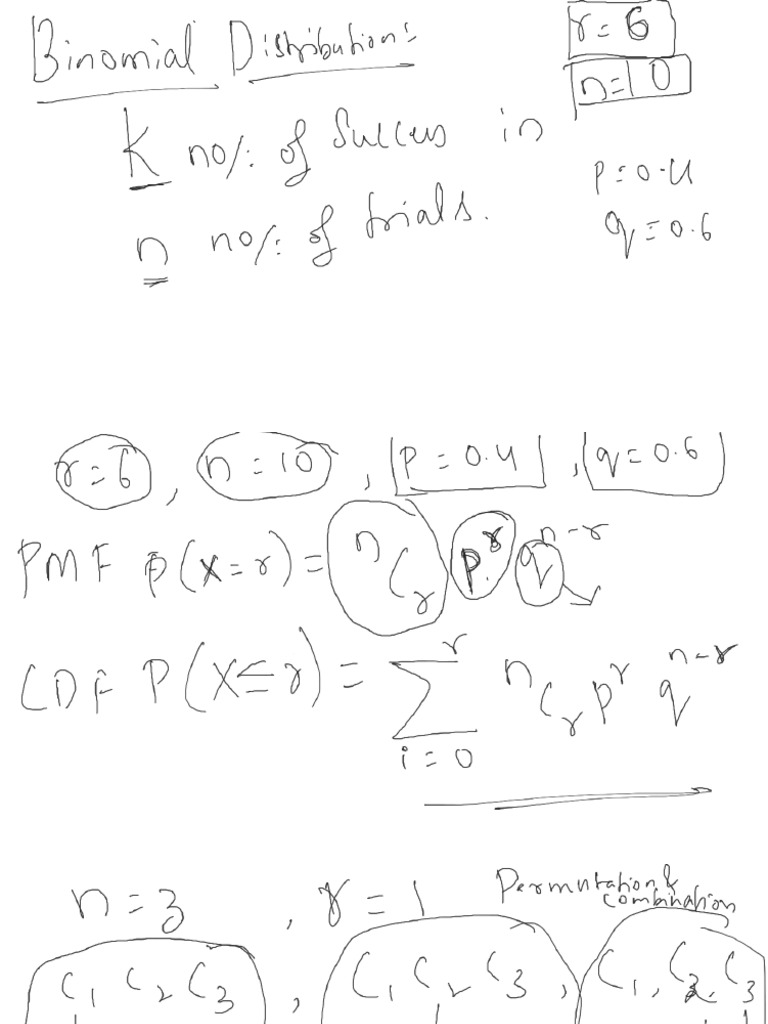 Binomial Distribution:
r = 6
n = 10
K no/: of Success in
p = 0.4
n no/: of trials.
q = 0.6
r = 6 , n = 10 , p = 0.4 , q = 0.6
PMF P(X = r) = nCr p^r q^n-r
CDF P(X ≤ r) = Σ r i = 0 nCr p^r q^n-r
n = 3 , r = 1 Permutation &
combination
C1 C2 C3 , C1 C2 C3 , C1, C2, C3